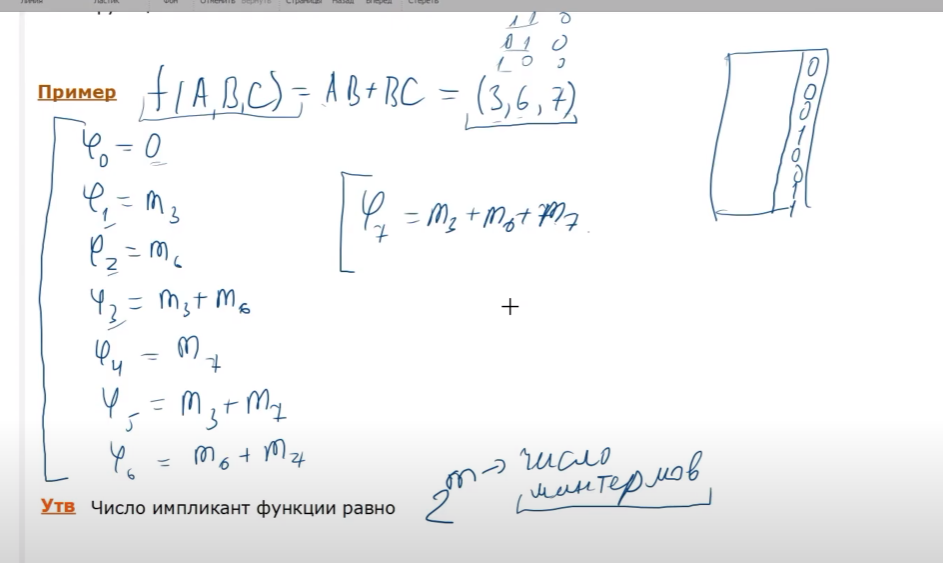 Линия Ластик Фон Отменить Вернуть Страницы Назад Вперед Стереть
1 1 0
0 1 0
1 0 0
Пример f(A,B,C) = AB+BC = (3,6,7)
φ₀ = 0
φ₁ = m₃
φ₂ = m₆
φ₃ = m₃ + m₆
φ₄ = m₇
φ₅ = m₃ + m₇
φ₆ = m₆ + m₇
φ₇ = m₃ + m₆ + m₇
0
0
0
1
0
0
1
1
Утв Число импликант функции равно 2^m → число
минтермов